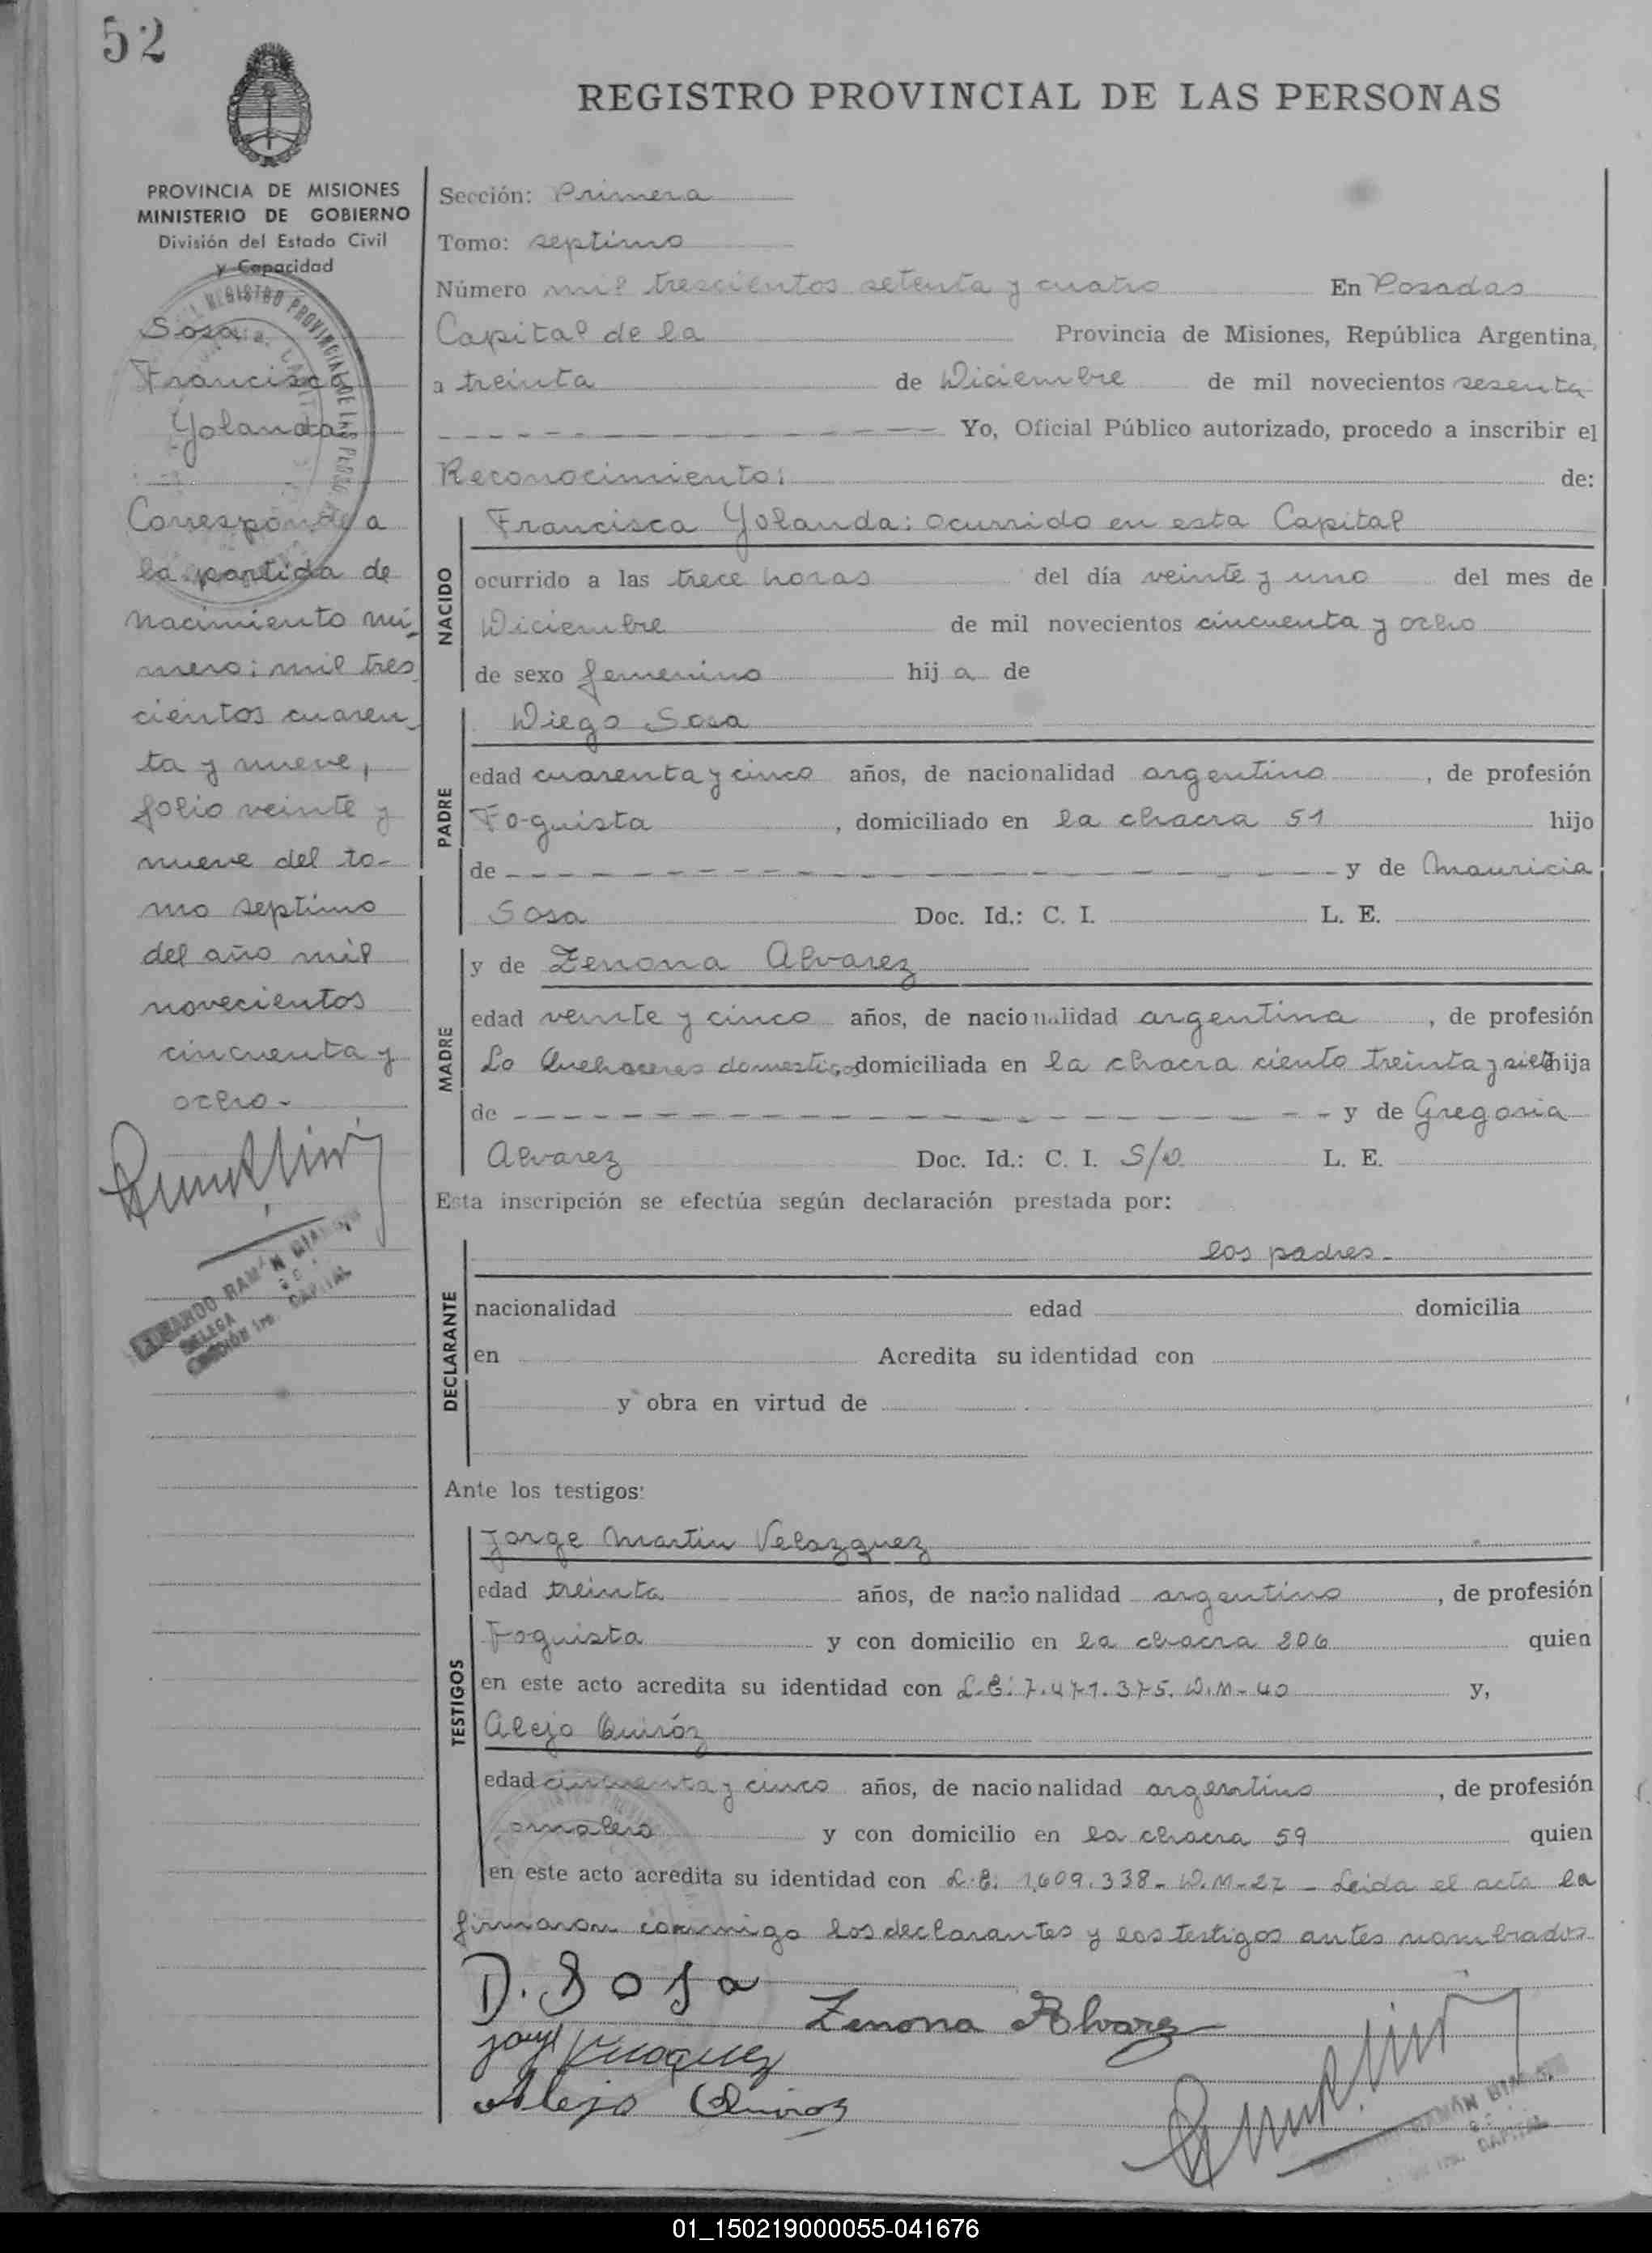 52
REGISTRO PROVINCIAL DE LAS PERSONAS
PROVINCIA DE MISIONES
MINISTERIO DE GOBIERNO
División del Estado Civil
y Capacidad
Sosa
Francisca
Yolanda
Corresponde a
la partida de
nacimiento nú
mero: mil tres
cientos cuaren
ta y nueve,
folio veinte y
nueve del to-
mo septimo
del año mil
novecientos
cincuenta y
ocho.-
Sección: Primera
Tomo: septimo
Número mil trescientos setenta y cuatro En Posadas
Capital de la Provincia de Misiones, República Argentina,
a treinta de Diciembre de mil novecientos sesenta
Yo, Oficial Público autorizado, procedo a inscribir el
Reconocimiento: de:
NACIDO
Francisca Yolanda: ocurrido en esta Capital
ocurrido a las trece horas del día veinte y uno del mes de
Diciembre de mil novecientos cincuenta y ocho
de sexo femenino hij a de
PADRE
Diego Sosa
edad cuarenta y cinco años, de nacionalidad argentino , de profesión
Foguista , domiciliado en la chacra 51 hijo
de - - - y de Mauricia
Sosa Doc. Id.: C. I. L. E.
MADRE
y de Zenona Alvarez
edad veinte y cinco años, de nacionalidad argentina , de profesión
Lo Quehaceres domesticos domiciliada en la chacra ciento treinta y siete hija
de - - - y de Gregoria
Alvarez Doc. Id.: C. I. S/D. L. E.
Esta inscripción se efectúa según declaración prestada por:
DECLARANTE
los padres.-
nacionalidad edad domicilia
en Acredita su identidad con
y obra en virtud de
Ante los testigos:
TESTIGOS
Jorge Martin Velazquez
edad treinta años, de nacionalidad argentino , de profesión
Foguista y con domicilio en la chacra 206 quien
en este acto acredita su identidad con L.E: 7.471.375. D.M-40 y,
Alejo Quiróz
edad cincuenta y cinco años, de nacionalidad argentino , de profesión
ornalero y con domicilio en la chacra 59 quien
en este acto acredita su identidad con L.E: 1.609.338- D.M-27 - Leida el acta la
firmaron conmigo los declarantes y los testigos antes nombrados
D. Sosa
Zenona Alvarez
Alejo Quiroz
01_150219000055-041676